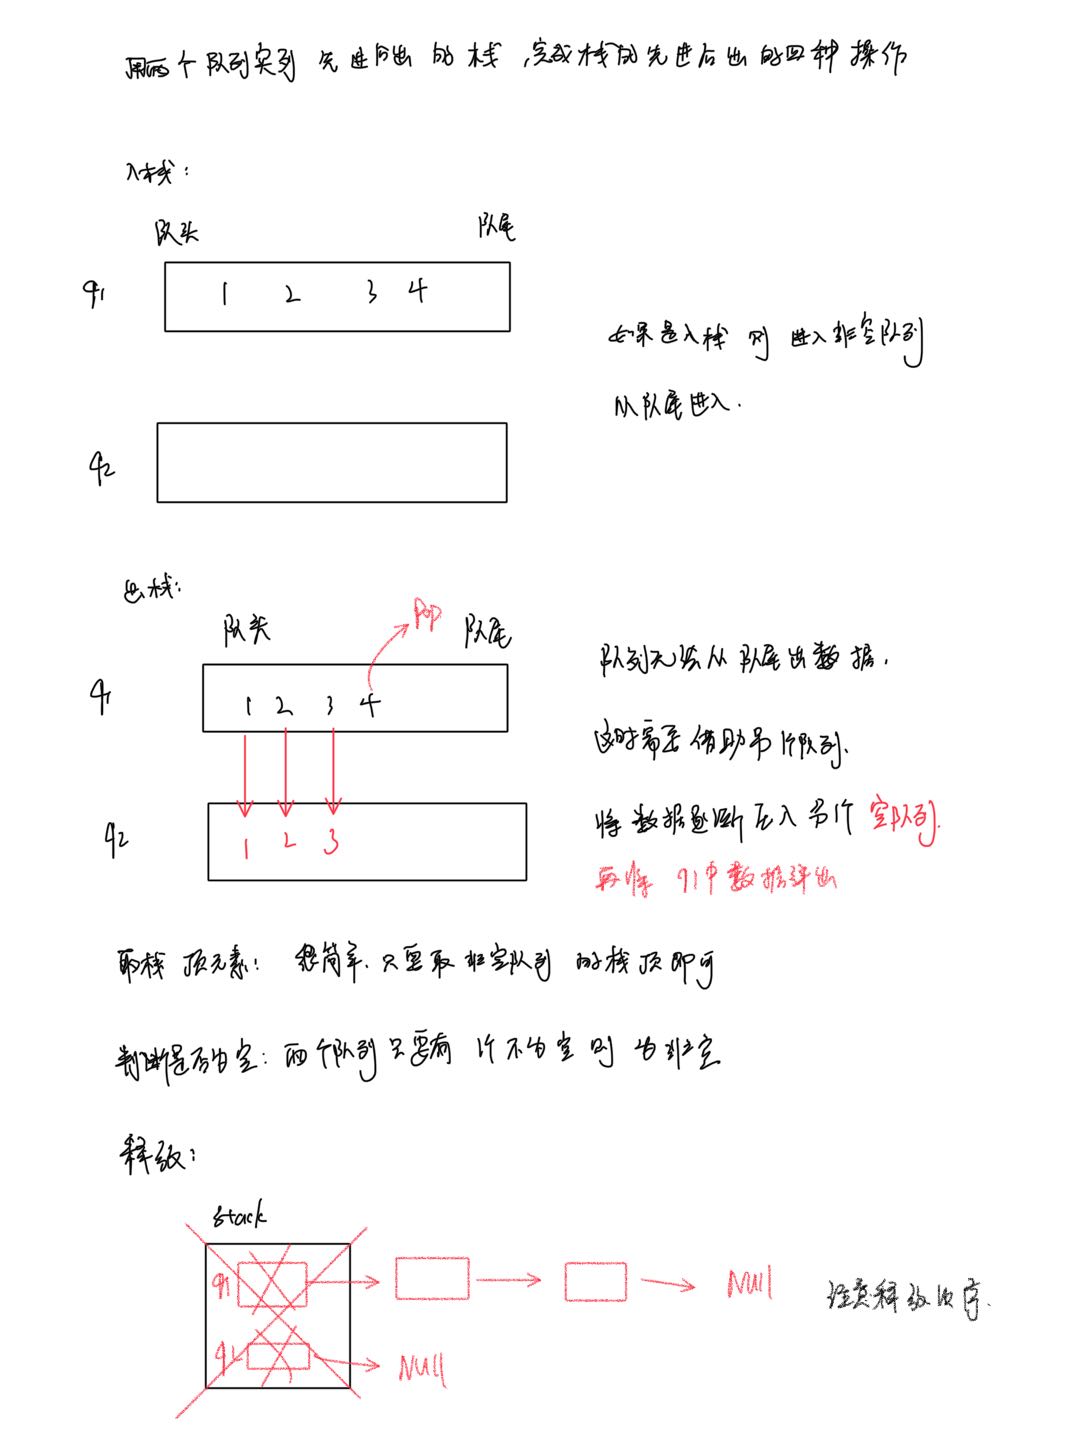 用两个队列实列 先进后出 的 栈 ,完成栈的先进后出的四种操作
入栈:
队头 队尾
q1 1 2 3 4
如果是入栈 则 进入非空队列
从队尾进入.
q2
出栈:
Pop
队头 队尾
q1 1 2 3 4
队列无法从队尾出数据.
这时需要借助另1个队列.
q2 1 2 3
将数据逐渐压入另1个空队列.
再将 q1中数据弹出
取栈顶元素: 很简单.只要取非空队列的栈顶即可
判断是否为空: 两个队列只要有1个不为空则为非空
释放:
stack
q1 NUll
注意释放次序.
q2 NUll